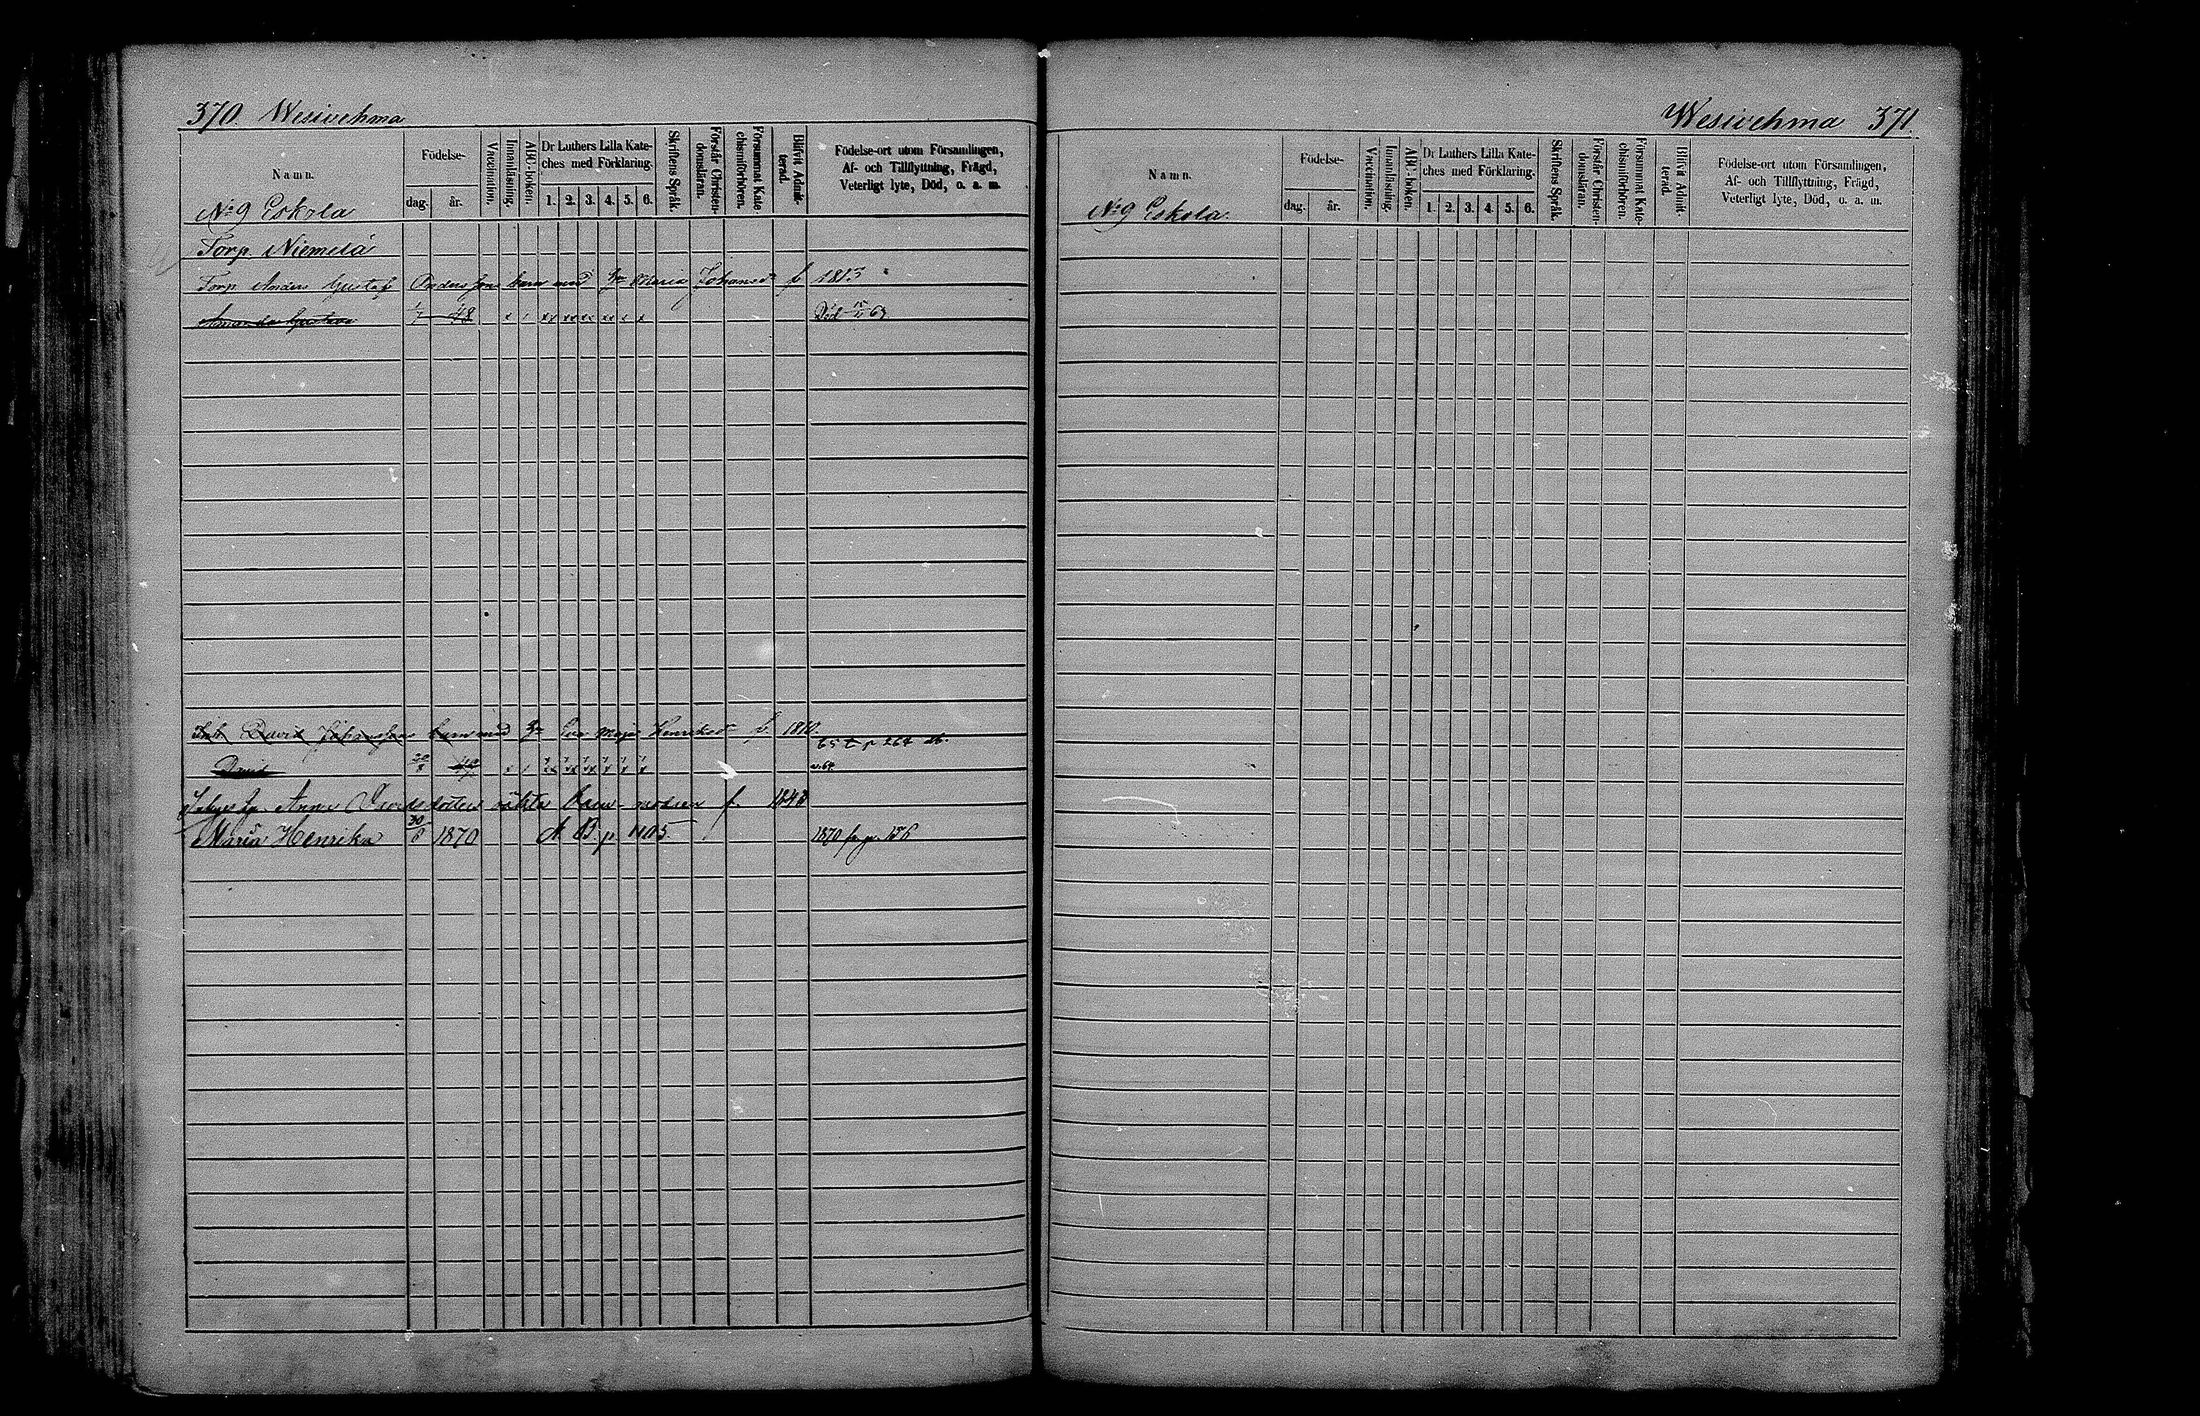 370. Wesivehma
Namn.
Födelse-
dag.
år.
Vaccination.
Innanläsning.
ABC-boken.
Dr Luthers Lilla Kate-
ches med Förklaring.
1. 2. 3. 4. 5. 6.
Skriftens Språk.
Förstår Christen-
domsläran.
Försummat Kate-
chismiförhören.
Blifvit Admit-
terad.
Födelse-ort utom Församlingen,
Af- och Tillflyttning, Frägd,
Veterligt lyte, Död, o. a. m.
No 9 Eskola
Torp. Niemelä
Torp. Anders Gustaf Andersson barn med Maria Johansd f 1813
Amanda Gustava 48 Död 67
David Johansson barn med Eva Maja Henriksd f. 1810.
65 t p 264
David 20
Anna Davidsdotters oäkta barn modren f. 1843
Maria Henrika 30/8 1870 A B p 1105 1870 fr p. 156
Wesivehma 371.
Namn.
Födelse-
dag.
år.
Vaccination.
Innanläsning.
ABC-boken.
Dr Luthers Lilla Kate-
ches med Förklaring.
1. 2. 3. 4. 5. 6.
Skriftens Språk.
Förstår Christen-
domsläran.
Försummat Kate-
chismiförhören.
Blifvit Admit-
terad.
Födelse-ort utom Församlingen,
Af- och Tillflyttning, Frägd,
Veterligt lyte, Död, o. a. m.
No 9 Eskola.